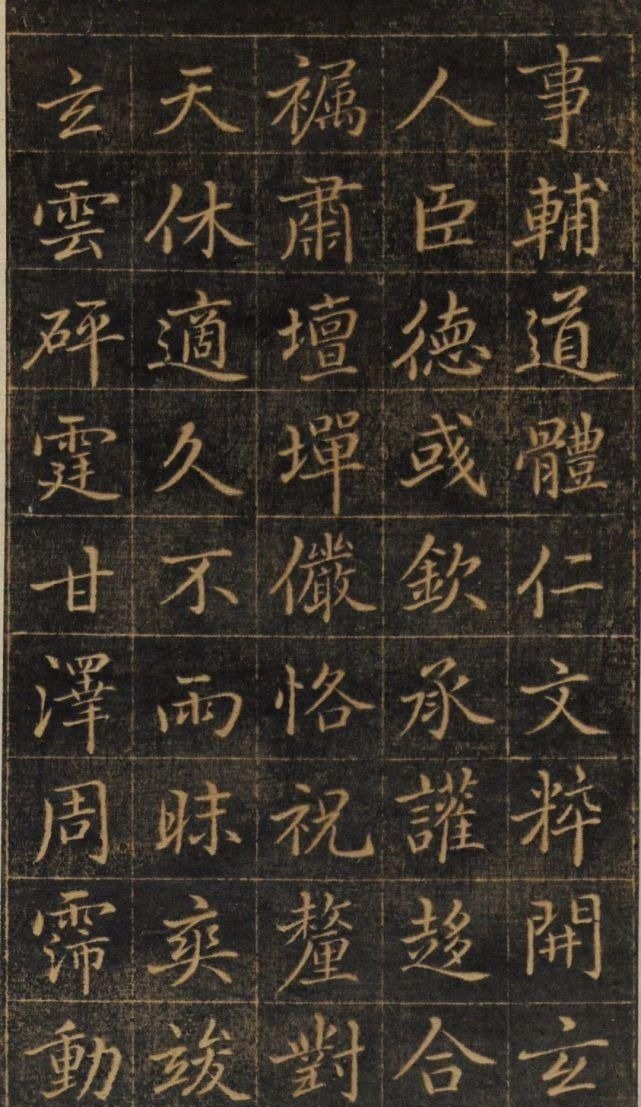 事輔道體仁文粹開玄
人臣德彧欽承讙趍合
襡肅壇墠儼恪祝釐對
天休適久不雨昧爽竣
玄雲砰霆甘澤周霈動